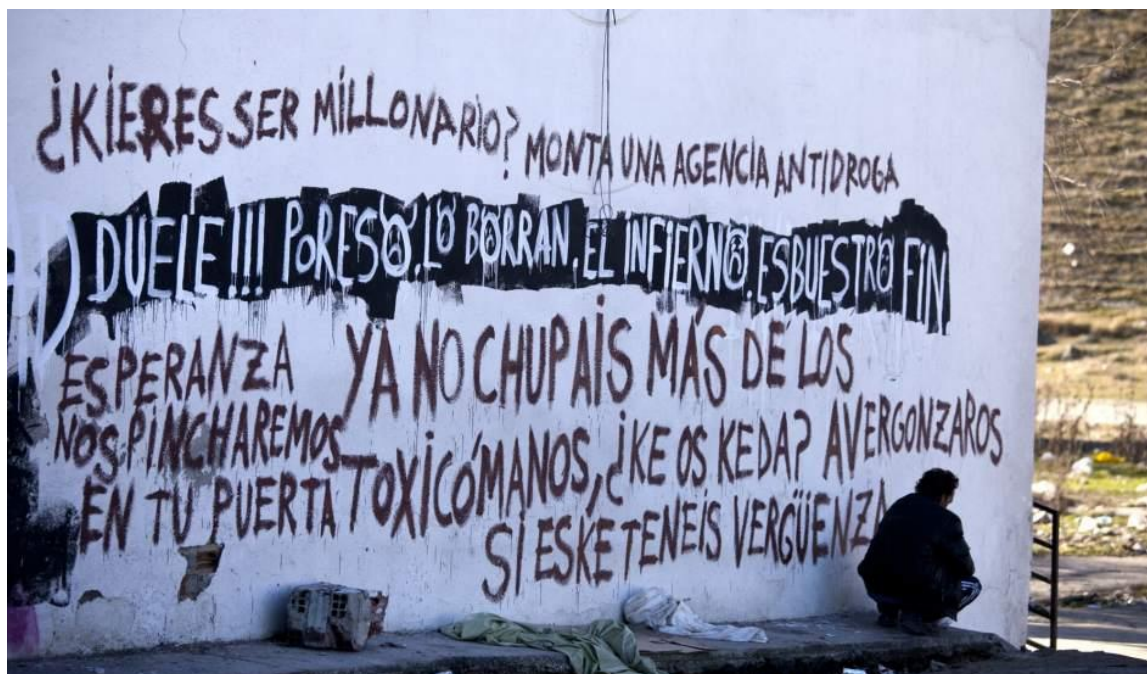 ¿KIERES SER MILLONARIO? MONTA UNA AGENCIA ANTIDROGA
DUELE!!! POR ESO. LO BORRAN. EL INFIERNO. ES BUESTRO FIN
ESPERANZA
NOS PINCHAREMOS
EN TU PUERTA
YA NO CHUPAIS MÁS DE LOS
TOXICÓMANOS, ¿KE OS KEDA? AVERGONZAROS
SI ESKE TENEIS VERGÜENZA